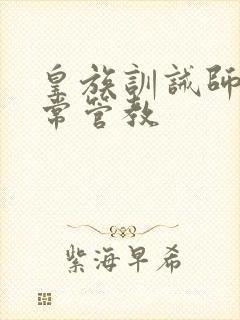 皇族訓誡師
常管教
紫海早希